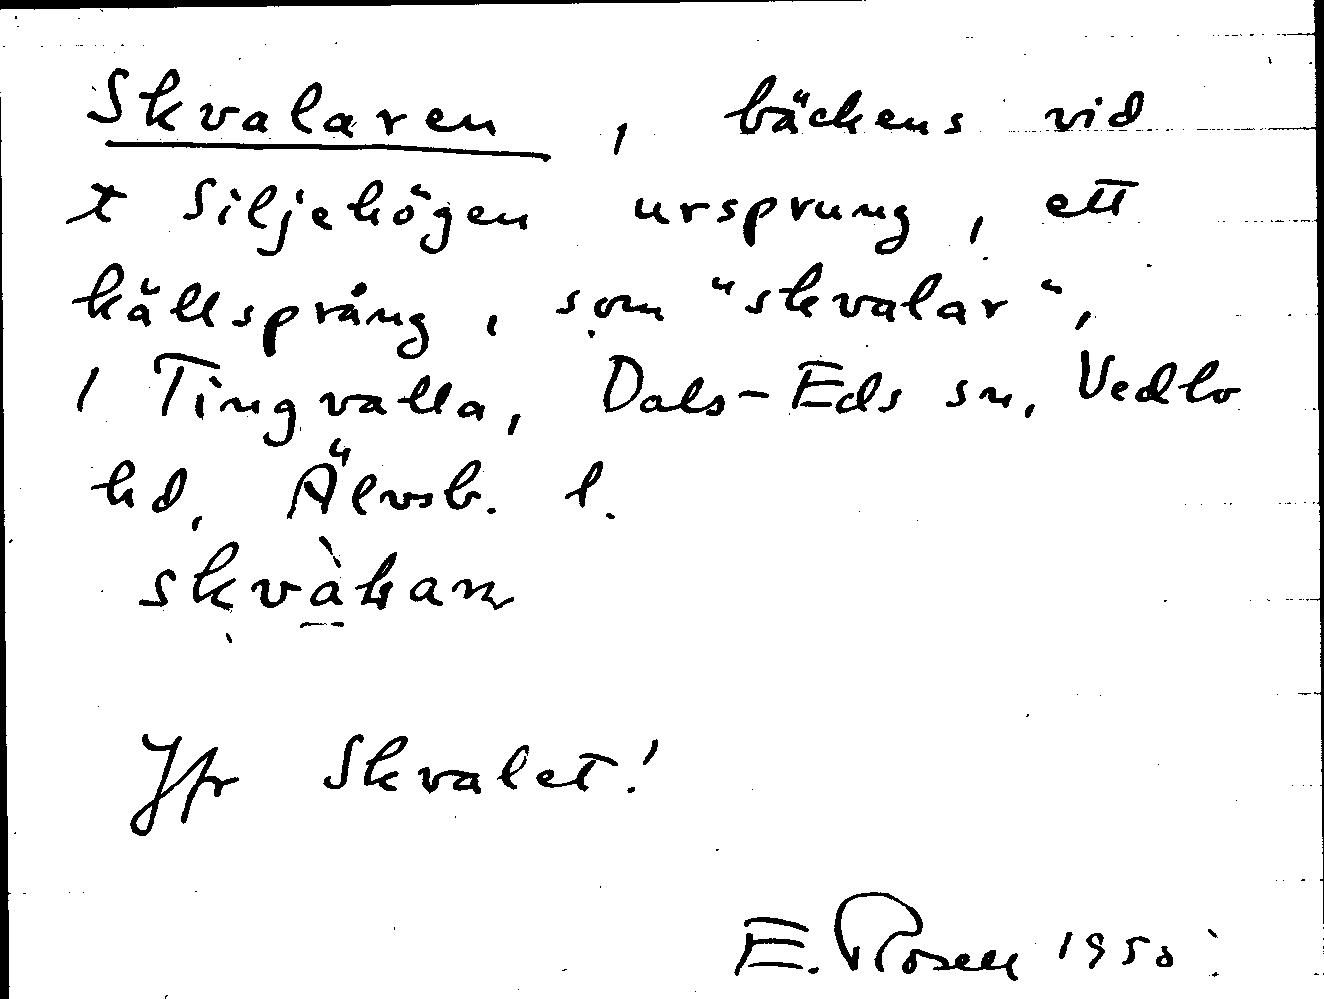 Skvalaren, bäckens vid
x Siljehögen ursprung, ett
källsprång, som "skvalar",
i Tingvalla, Dals-Eds sn, Vedbo
hd, Älvsb. l.
Jfr Skvalet!
E. Rosell 1950